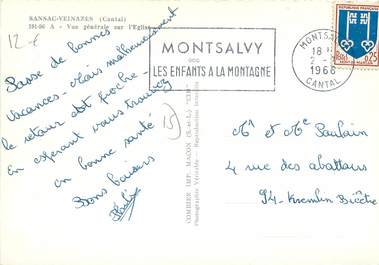 SANSAC-VEINAZES (Cantal)
191-56 A - Vue générale sur l'Eglise
12 €
Passé de bonnes
vacances - Mais malheureusement
le retour est proche -
En espérant vous trouver
en bonne santé
Bons baisers
15)
COMBIER IMP. MACON (S.-et-L.) "CIM"
Photographie Véritable - Reproduction interdite
MONTSALVY
LES ENFANTS A LA MONTAGNE
MONTSALVY
18 H
1966
CANTAL
REPUBLIQUE FRANÇAISE
0,25
Mr et Me Paulain
4 rue des abattoirs
94 - Kremlin Bicêtre